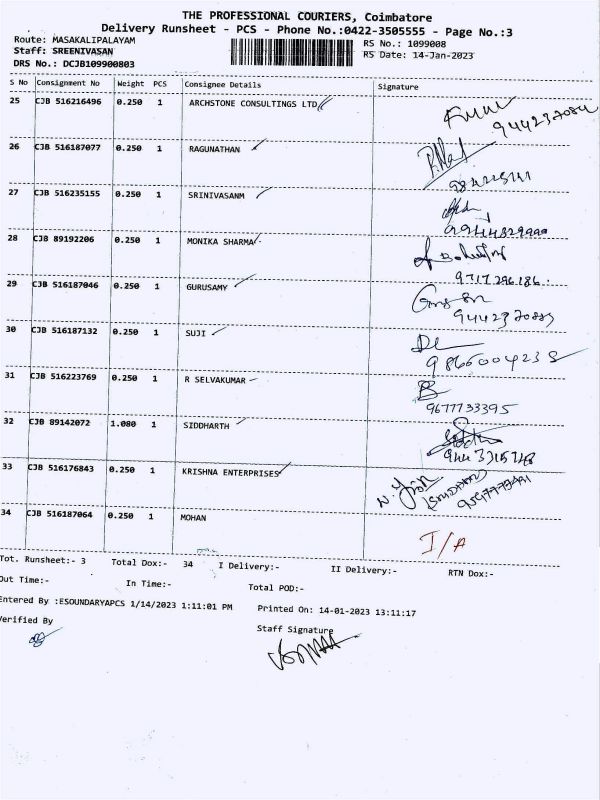 THE PROFESSIONAL COURIERS, Coimbatore
Delivery Runsheet - PCS - Phone No.:0422-3505555 - Page No.:3
Route: MASAKALIPALAYAM
RS No.: 1099008
Staff: SREENIVASAN
RS Date: 14-Jan-2023
DRS No.: DCJB109900803
S No Consignment No Weight PCS Consignee Details Signature
25 CJB 516216496 0.250 1 ARCHSTONE CONSULTINGS LTD
26 CJB 516187077 0.250 1 RAGUNATHAN
27 CJB 516235155 0.250 1 SRINIVASANM
28 CJB 89192206 0.250 1 MONIKA SHARMA
9717296186
29 CJB 516187046 0.250 1 GURUSAMY
30 CJB 516187132 0.250 1 SUJI
31 CJB 516223769 0.250 1 R SELVAKUMAR
9677733395
32 CJB 89142072 1.080 1 SIDDHARTH
33 CJB 516176843 0.250 1 KRISHNA ENTERPRISES
34 CJB 516187064 0.250 1 MOHAN
I/A
Tot. Runsheet:- 3 Total Dox:- 34 I Delivery:- II Delivery:- RTN Dox:-
Out Time:- In Time:- Total POD:-
Entered By :ESOUNDARYAPCS 1/14/2023 1:11:01 PM Printed On: 14-01-2023 13:11:17
Verified By Staff Signature